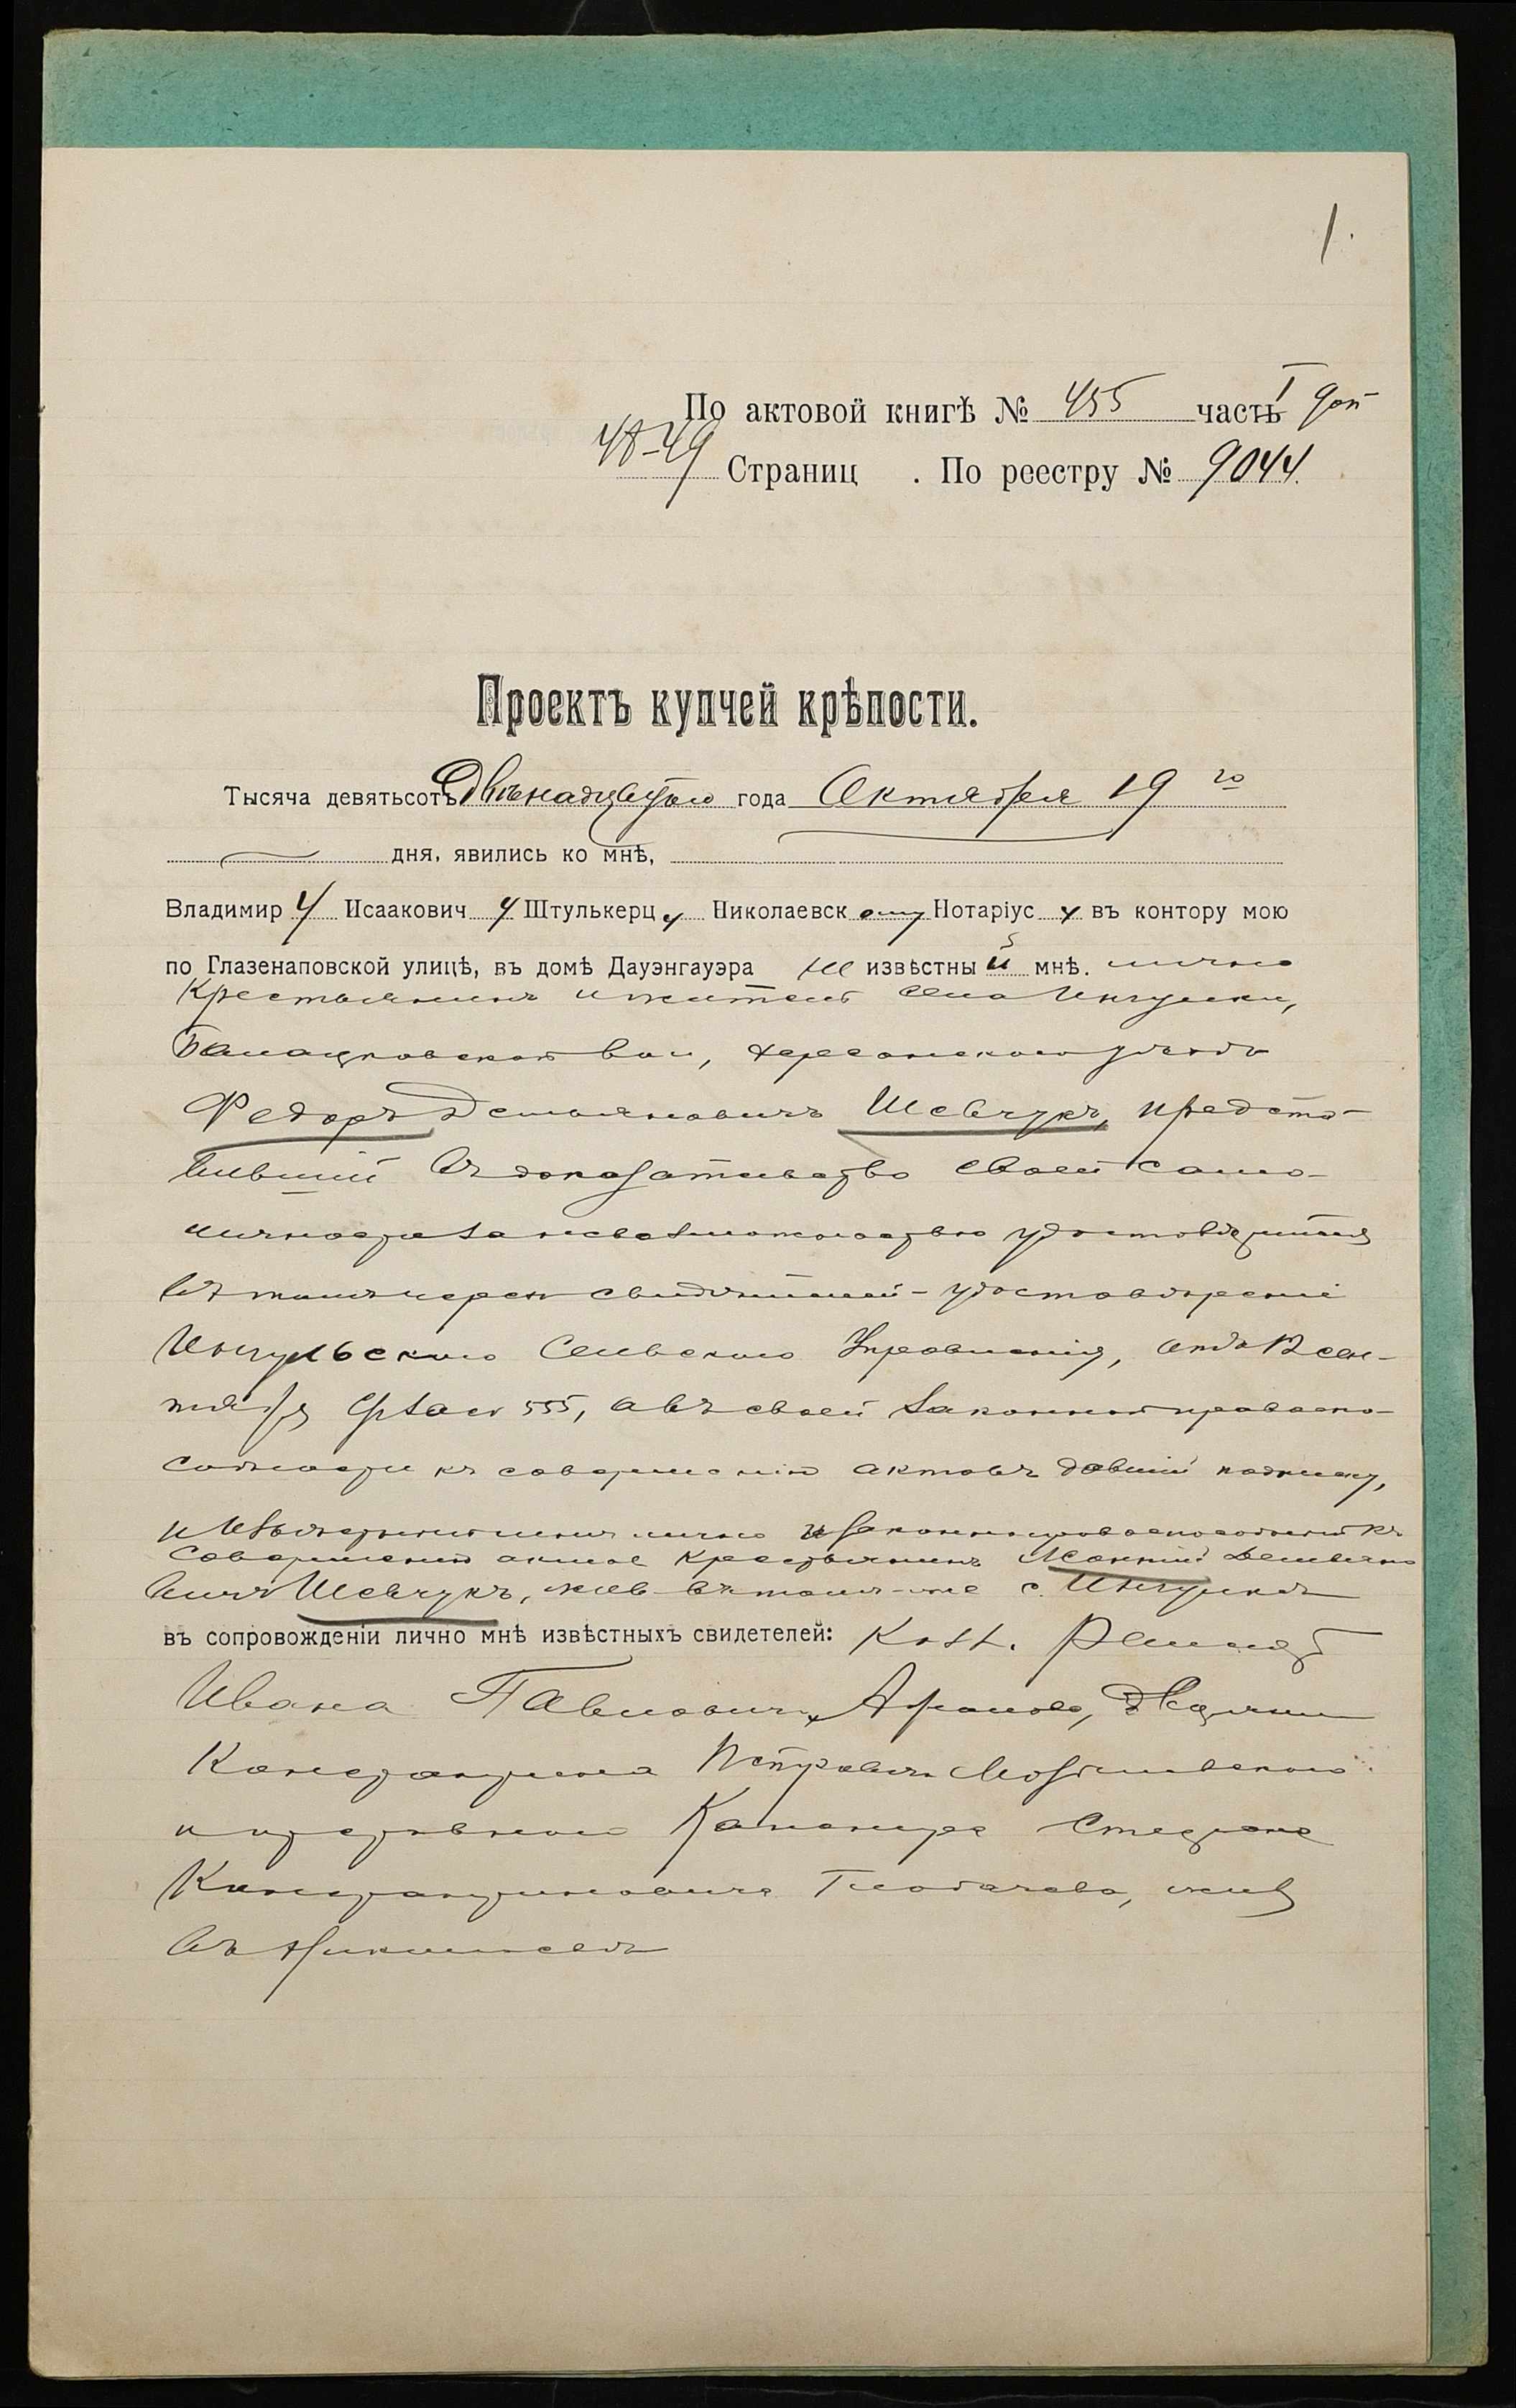 1.
По актовой книгѣ № 455 часть I доп
48-49 Страниц . По реестру № 9044.
Проектъ купчей крѣпости.
Тысяча девятьсотъ Двѣнадцатаго года Октября 19 го
дня, явились ко мнѣ,
Владимир у Исаакович у Штулькерц у Николаевск ому Нотаріус у въ контору мою
по Глазенаповской улицѣ, въ домѣ Дауэнгауэра не извѣстны й мнѣ. лично
Крестьянинъ и житель села Ингулки,
Балацковской вол, Херсонского уѣзда
Федоръ Демьяновичъ Шевчукъ, предста-
вившій въ доказательство своей само-
личности за невозможностью удостовѣриться
въ томъ черезъ свидѣтелей - удостовѣреніе
Ингульского Сельского Управленія, отъ 12 сен-
тября за № 555, а въ своей законной правоспо-
собности къ совершенію актовъ давшій подписку,
и извѣстный мнѣ лично и законно правоспособный къ
совершенію актов Крестьянинъ Демьяно
вичъ Шевчукъ, жив въ томъ-же с. Ингулкѣ
въ сопровожденіи лично мнѣ извѣстныхъ свидетелей:
Ивана Павловича
Константина Петровича
Степана
Константиновича жив
въ Николаевѣ